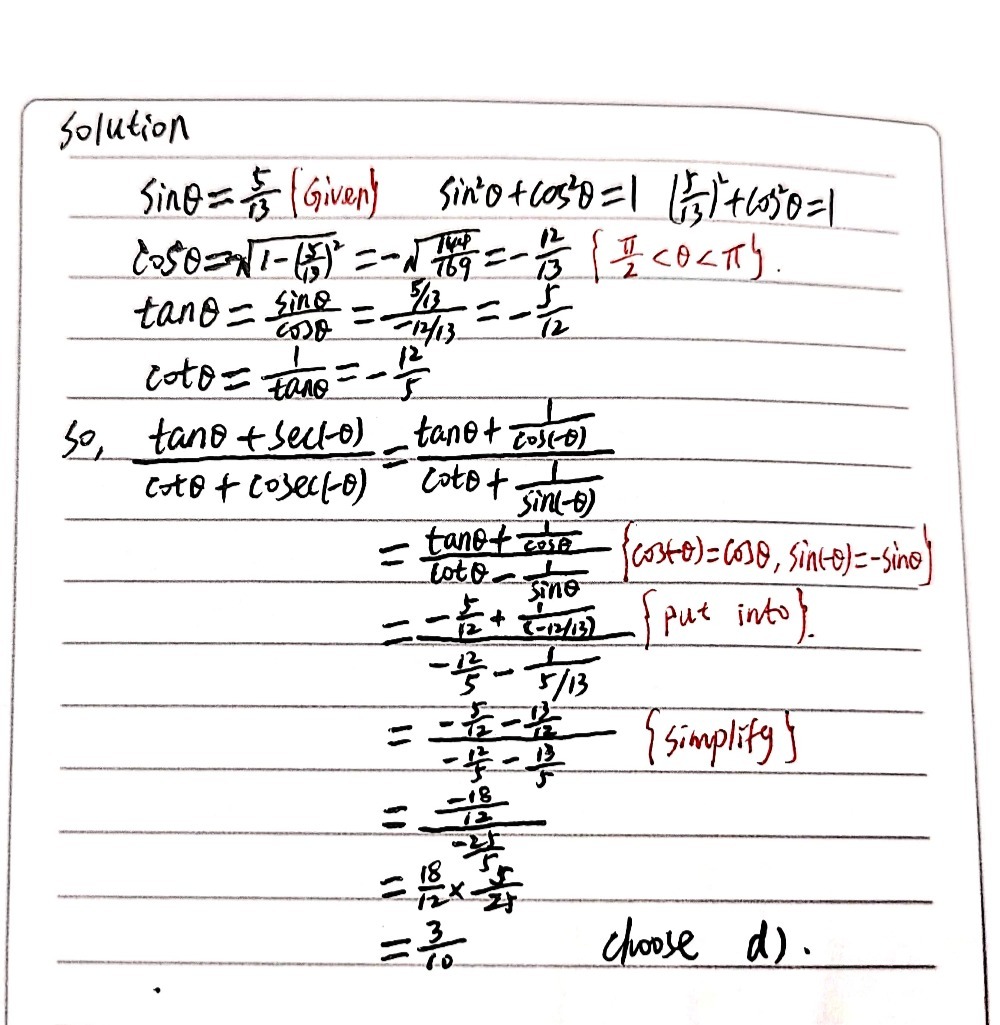 Solution
sinθ = 5/13 {Given} sin²θ + cos²θ = 1 (5/13)² + cos²θ = 1
cosθ = -√(1-(5/13)²) = -√(144/169) = -12/13 {π/2 < θ < π}.
tanθ = sinθ/cosθ = (5/13)/(-12/13) = -5/12
cotθ = 1/tanθ = -12/5
So, (tanθ + sec(-θ))/(cotθ + cosec(-θ)) = (tanθ + 1/cos(-θ))/(cotθ + 1/sin(-θ))
= (tanθ + 1/cosθ)/(cotθ - 1/sinθ) {cos(-θ) = cosθ, sin(-θ) = -sinθ}
= (-5/12 + 1/(-12/13))/(-12/5 - 1/(5/13)) {put into}.
= (-5/12 - 13/12)/(-12/5 - 13/5) {simplify}
= (-18/12)/(-25/5)
= 18/12 × 5/25
= 3/10 choose d).